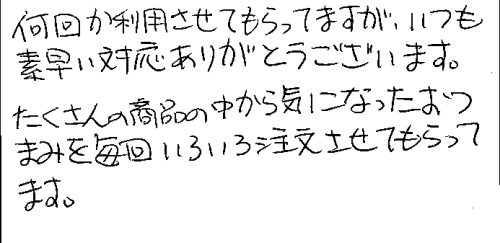 何回か利用させてもらってますが、いつも
素早い対応ありがとうございます。
たくさんの商品の中から気になったおつ
まみを毎回いろいろ注文させてもらって
ます。